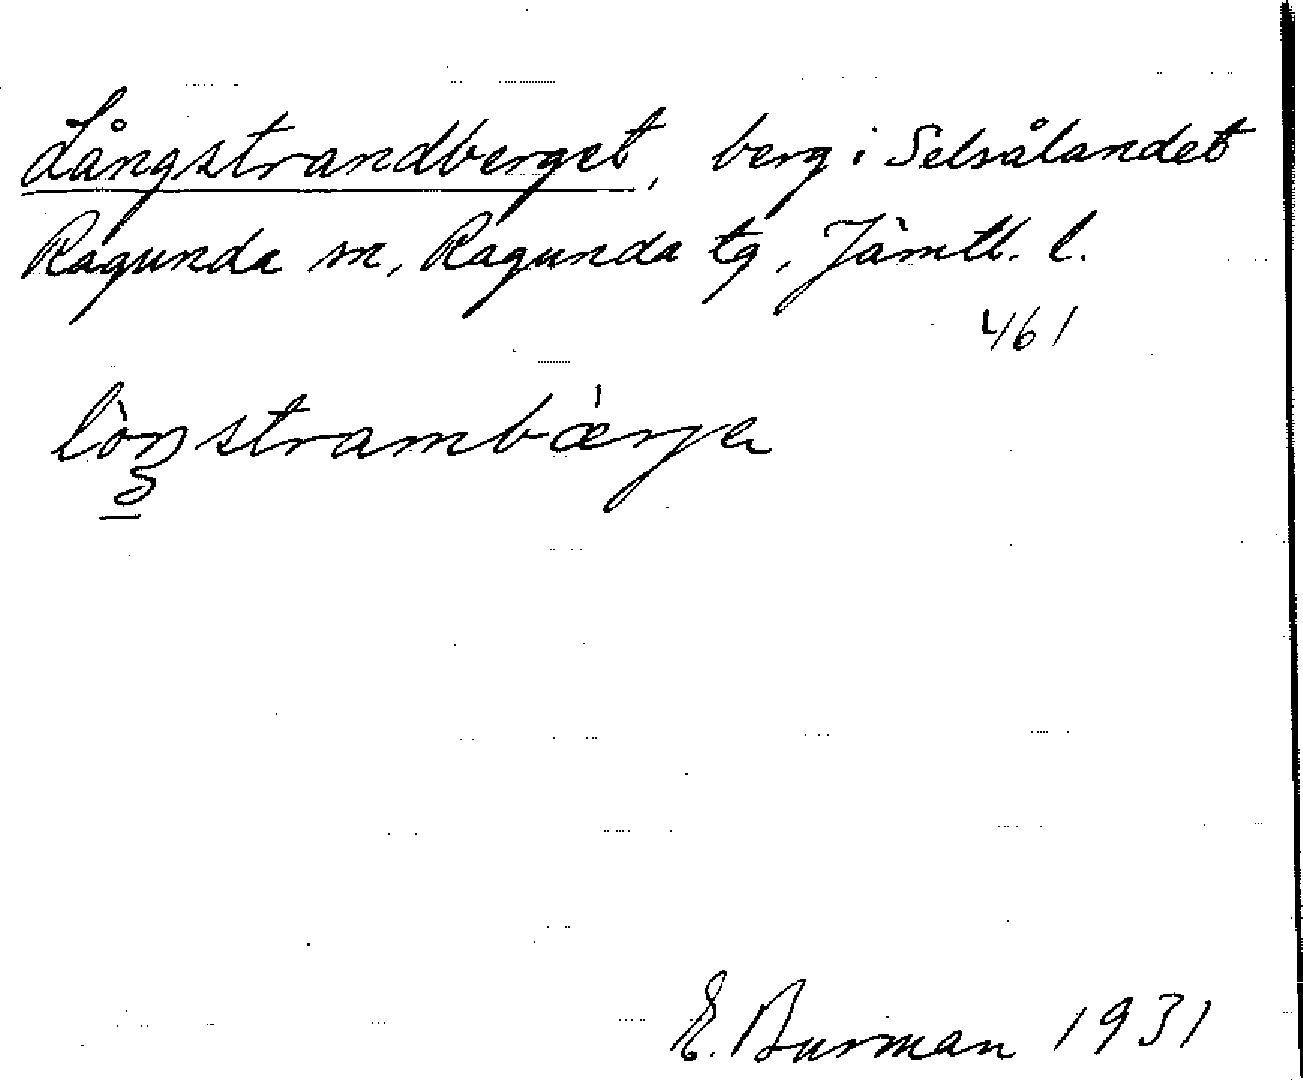 Långstrandberget, berg i Selsålandet
Ragunda sn, Ragunda tg, Jämtl. l.
461
lòŋstrambǽrja
E. Burman 1931